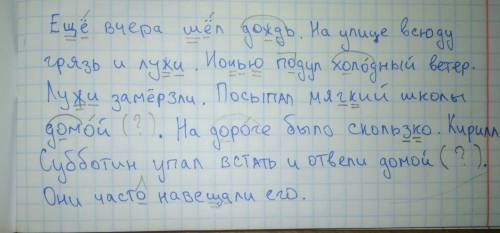 Ещё вчера шёл дождь. На улице всюду
грязь и лужи. Ночью подул холодный ветер.
Лужи замёрзли. Посыпал мягкий школы
домой (?). На дороге было скользко. Кирилл
Субботин упал встать и отвели домой (?).
Они часто навещали его.